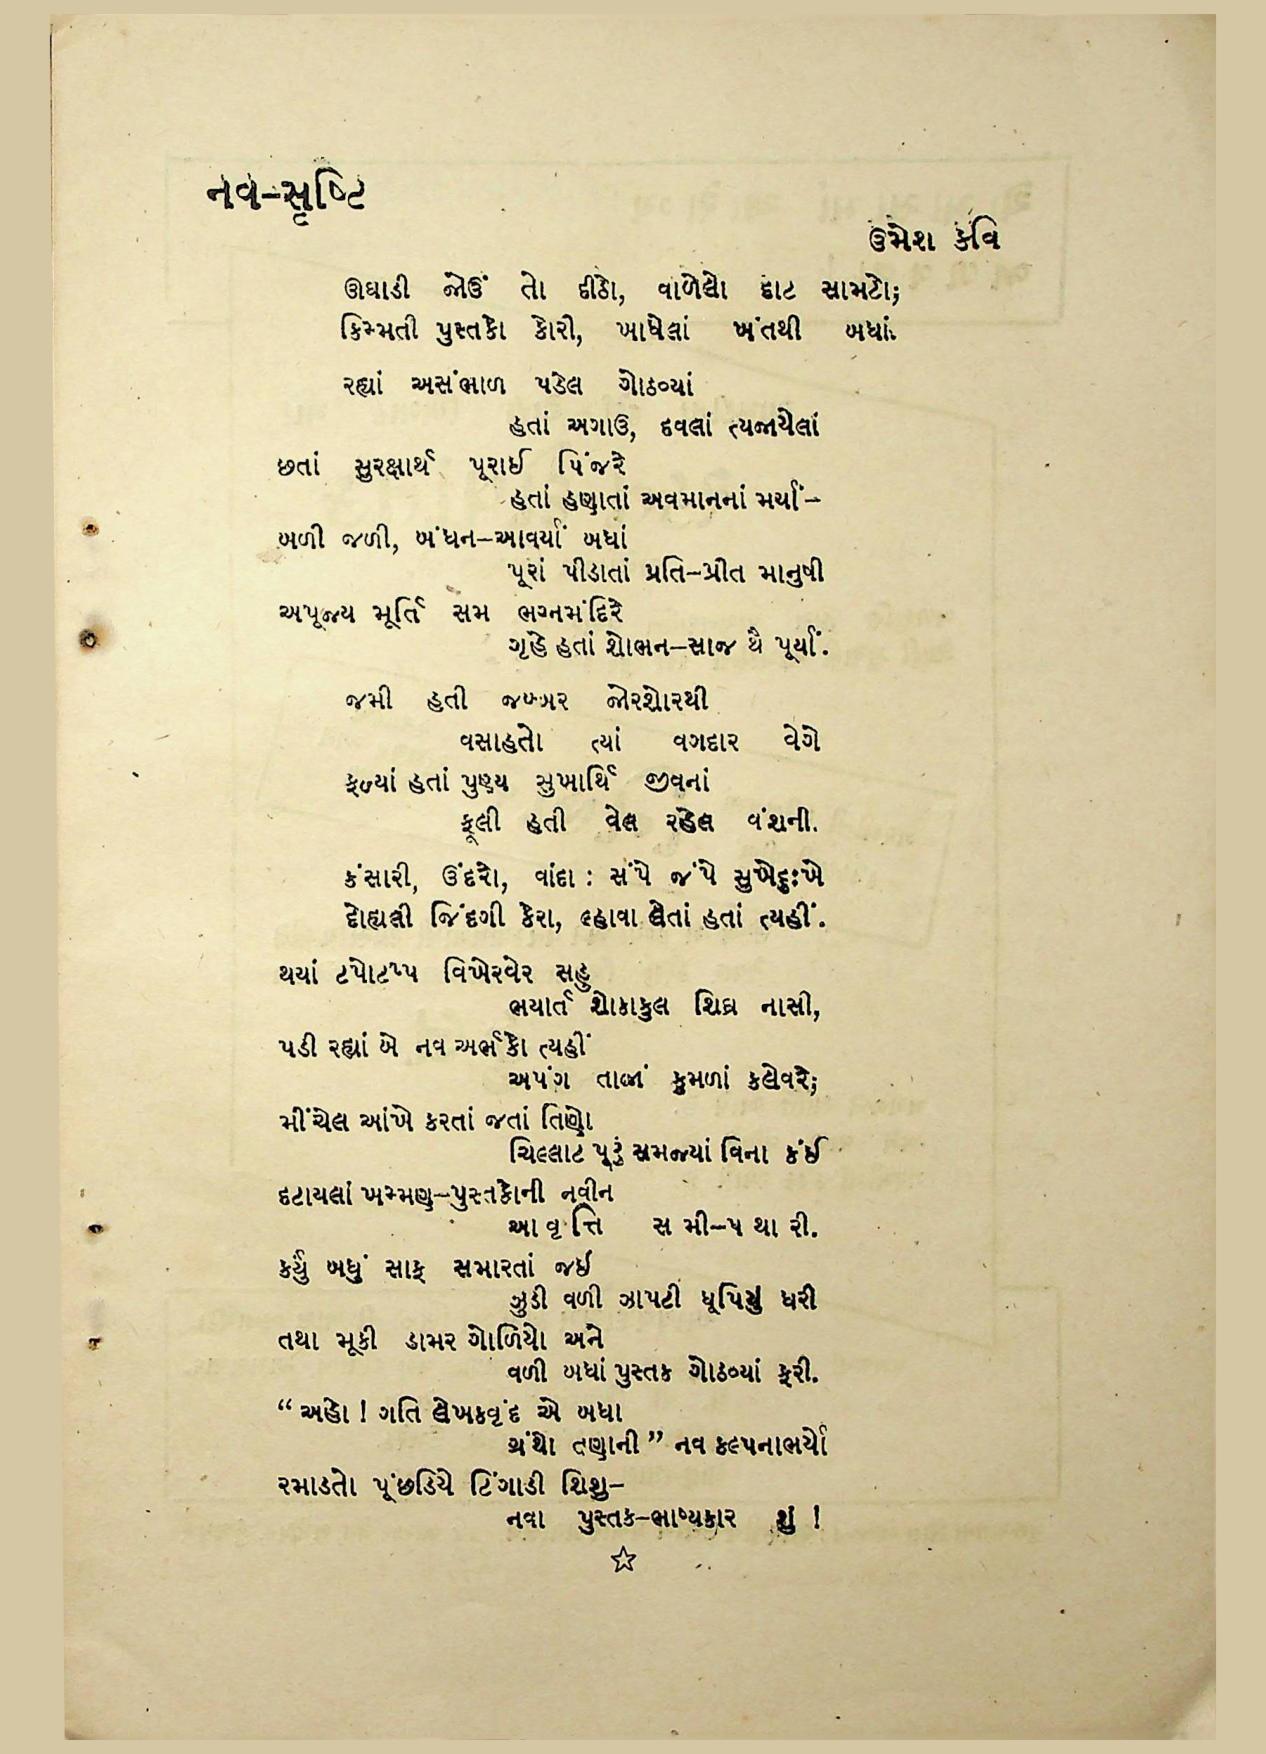 નવ–સૃષ્ટિ
ઉમેશ કવિ
ઊઘાડી જોઉં તો દીઠો, વાળેલો દાટ સામટો;
કિમ્મતી પુસ્તકો કોરી, ખાધેલાં ખંતથી બધાં.
રહ્યાં અસંભાળ પડેલ ગોઠવ્યાં
હતાં અગાઉ, દવલાં ત્યજાયેલાં
છતાં સુરક્ષાર્થ પૂરાઈ પિંજરે
હતાં હણાતાં અવમાનનાં મર્યાં–
બળી જળી, બંધન–આવર્યાં બધાં
પૂરાં પીડાતાં પ્રતિ–પ્રીત માનુષી
અપૂજ્ય મૂર્તિ સમ ભગ્નમંદિરે
ગૃહે હતાં શોભન–સાજ થૈ પૂર્યાં.
જમી હતી જબ્બર જોરશોરથી
વસાહતો ત્યાં વગદાર વેગે
ફળ્યાં હતાં પુણ્ય સુખાર્થિ જીવનાં
ફૂલી હતી વેલ રહેલ વંશની.
કંસારી, ઉંદરો, વાંદા : સંપે જંપે સુખેદુઃખે
દોહ્યલી જિંદગી કેરા, લ્હાવા લેતાં હતાં ત્યહીં.
થયાં ટપોટપ્પ વિખેરવેર સહુ
ભયાર્ત શોકાકુલ શિઘ્ર નાસી,
પડી રહ્યાં બે નવ અર્ભકો ત્યહીં
અપંગ તાજાં કુમળાં કલેવરે;
મીંચેલ આંખે કરતાં જતાં તિણો
ચિલ્લાટ પૂઠું સમજ્યાં વિના કંઈ
દટાયલાં ખમ્મણુ–પુસ્તકોની નવીન
આ વૃ ત્તિ સ મી–પ થા રી.
કર્યું બધું સાફ સમારતાં જઈ
ઝુડી વળી ઝાપટી ધૂપિયુ ધરી
તથા મૂકી ડામર ગોળિયો અને
વળી બધાં પુસ્તક ગોઠવ્યાં ફરી.
“અહો ! ગતિ લેખકવૃંદ એ બધા
ગ્રંથો તણાની” નવ કલ્પનાભર્યો
રમાડતો પૂંછડિયે ટિંગાડી શિશુ–
નવા પુસ્તક–ભાષ્યકાર શું !